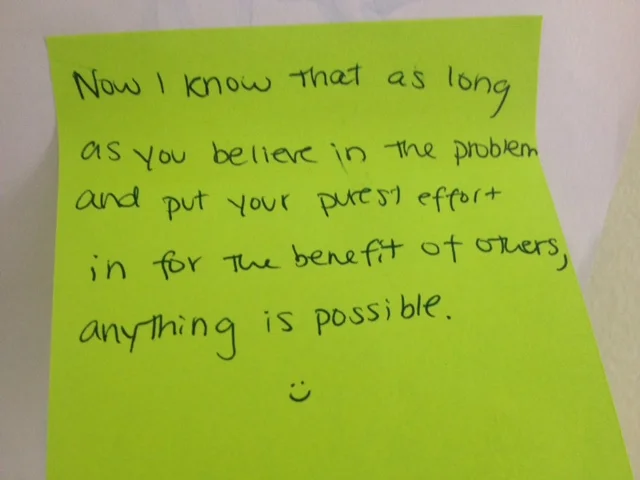 Now I know that as long
as you believe in the problem
and put your purest effort
in for the benefit of others,
anything is possible.
:)